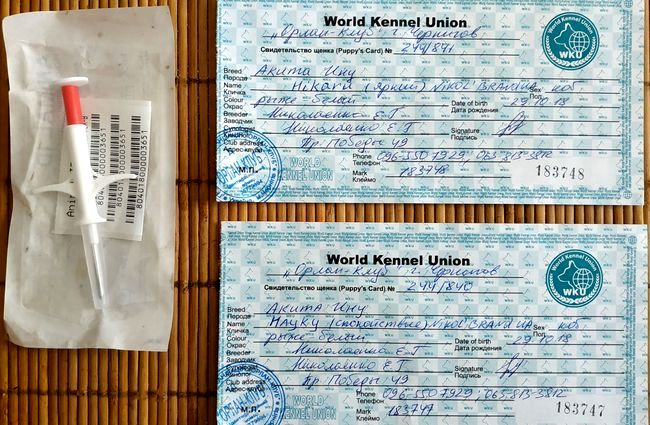 804018000003651
804018000003651
World Kennel Union
"Орман-Клуб" г. Чернигов
Свидетельство щенка (Puppy's Card) № 244/841
Breed
Порода Акита Ину
Name
Кличка Hikari (яркий) NIKOL BRAND UA Sex
Пол коб
Colour
Окрас рыже-белый Date of birth
Дата рождения 29.10.18
Breeder
Заводчик Николаенко Е.Г
Николаенко Е.Г Signature
Подпись
Club address
Адрес клуба пр Победы 49
Phone
Телефон 096-550 7929, 063-813-3812
М.П.
WORLD
KENNEL UNION
Mark
Клеймо 183748
183748
World Kennel Union
WKU
World Kennel Union
"Орман-Клуб" г. Чернигов
Свидетельство щенка (Puppy's Card) № 244/840
Breed
Порода Акита Ину
Name
Кличка (спокойствие) NIKOL BRAND UA Sex
Пол коб
Colour
Окрас рыже-белый Date of birth
Дата рождения 29.10.18
Breeder
Заводчик Николаенко Е.Г
Николаенко Е.Г Signature
Подпись
Club address
Адрес клуба пр Победы 49
Phone
Телефон 096 550 7929, 063-813-3812
М.П.
WORLD
KENNEL UNION
Mark
Клеймо 183747
183747
World Kennel Union
WKU